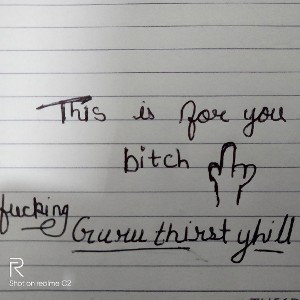 This is for you
bitch
fucking
Guru thirst yhill
R
Shot on realme C2